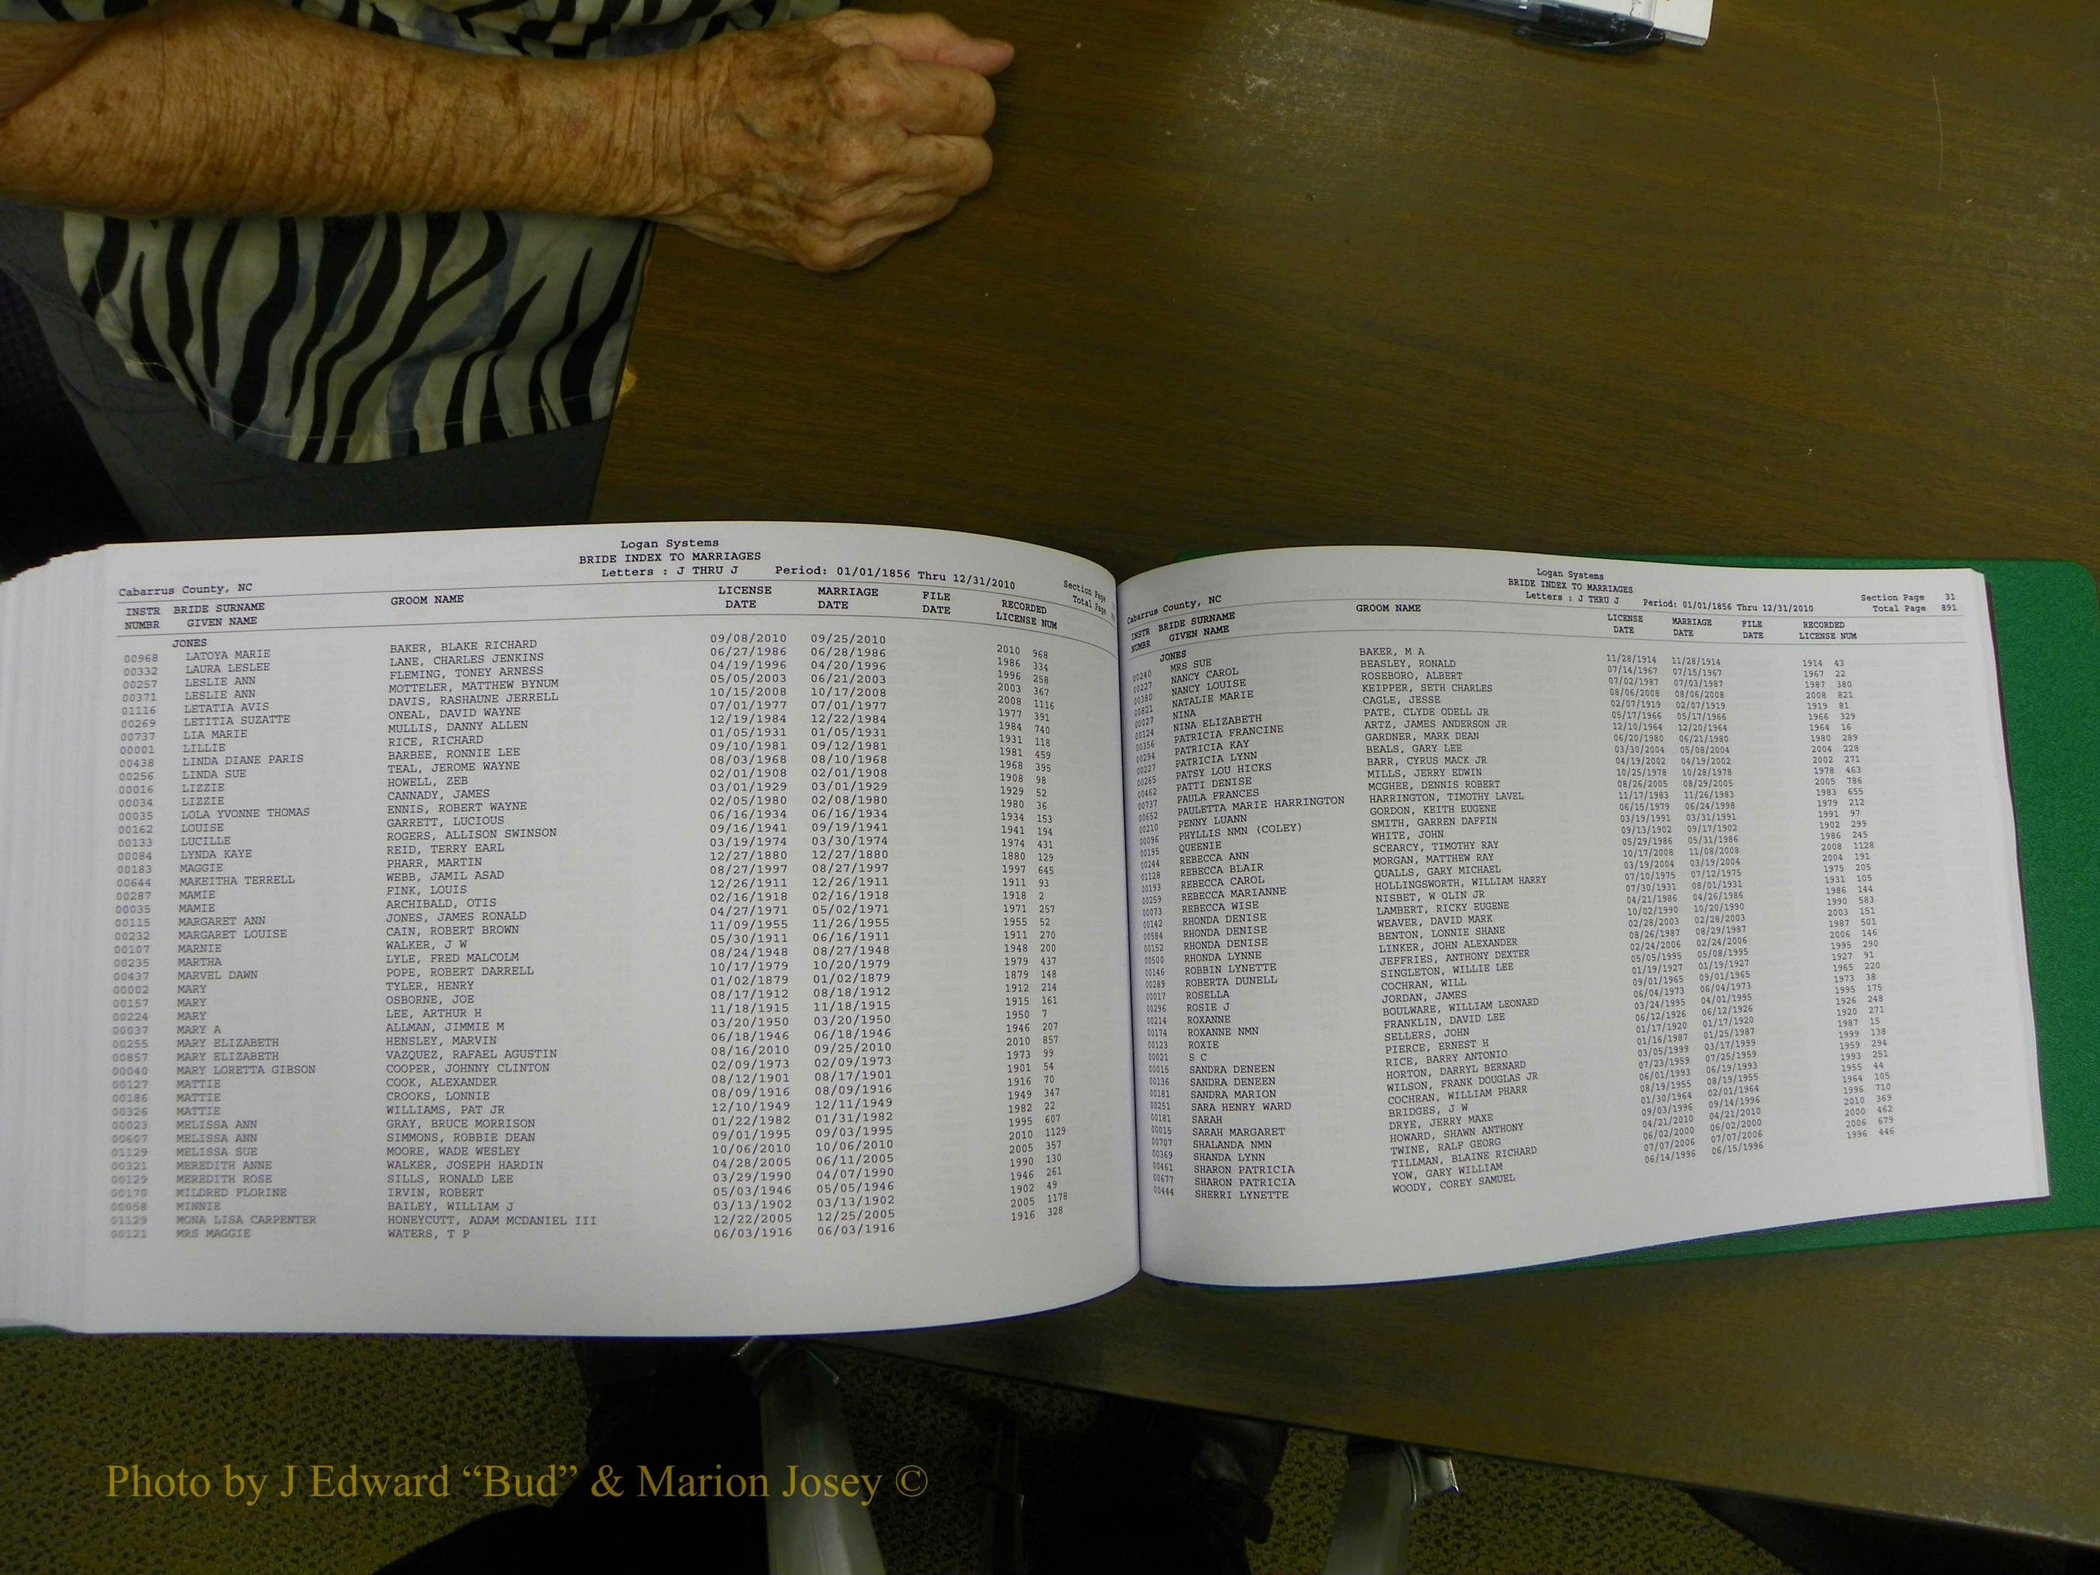 Logan Systems
BRIDE INDEX TO MARRIAGES
Letters : J THRU J Period: 01/01/1856 Thru 12/31/2010
Cabarrus County, NC Section Page
Total Page
INSTR BRIDE SURNAME GROOM NAME LICENSE MARRIAGE FILE RECORDED
NUMBR GIVEN NAME DATE DATE DATE LICENSE NUM
JONES
00968 LATOYA MARIE BAKER, BLAKE RICHARD 09/08/2010 09/25/2010 2010 968
00332 LAURA LESLEE LANE, CHARLES JENKINS 06/27/1986 06/28/1986 1986 334
00257 LESLIE ANN FLEMING, TONEY ARNESS 04/19/1996 04/20/1996 1996 258
00371 LESLIE ANN MOTTELER, MATTHEW BYNUM 05/05/2003 06/21/2003 2003 367
01116 LETATIA AVIS DAVIS, RASHAUNE JERRELL 10/15/2008 10/17/2008 2008 1116
00269 LETITIA SUZATTE ONEAL, DAVID WAYNE 07/01/1977 07/01/1977 1977 391
00737 LIA MARIE MULLIS, DANNY ALLEN 12/19/1984 12/22/1984 1984 740
00001 LILLIE RICE, RICHARD 01/05/1931 01/05/1931 1931 118
00438 LINDA DIANE PARIS BARBEE, RONNIE LEE 09/10/1981 09/12/1981 1981 459
00256 LINDA SUE TEAL, JEROME WAYNE 08/03/1968 08/10/1968 1968 395
00016 LIZZIE HOWELL, ZEB 02/01/1908 02/01/1908 1908 98
00034 LIZZIE CANNADY, JAMES 03/01/1929 03/01/1929 1929 52
00035 LOLA YVONNE THOMAS ENNIS, ROBERT WAYNE 02/05/1980 02/08/1980 1980 36
00162 LOUISE GARRETT, LUCIOUS 06/16/1934 06/16/1934 1934 153
00133 LUCILLE ROGERS, ALLISON SWINSON 09/16/1941 09/19/1941 1941 194
00084 LYNDA KAYE REID, TERRY EARL 03/19/1974 03/30/1974 1974 431
00183 MAGGIE PHARR, MARTIN 12/27/1880 12/27/1880 1880 129
00644 MAKEITHA TERRELL WEBB, JAMIL ASAD 08/27/1997 08/27/1997 1997 645
00287 MAMIE FINK, LOUIS 12/26/1911 12/26/1911 1911 93
00035 MAMIE ARCHIBALD, OTIS 02/16/1918 02/16/1918 1918 2
00115 MARGARET ANN JONES, JAMES RONALD 04/27/1971 05/02/1971 1971 257
00232 MARGARET LOUISE CAIN, ROBERT BROWN 11/09/1955 11/26/1955 1955 52
00107 MARNIE WALKER, J W 05/30/1911 06/16/1911 1911 270
00235 MARTHA LYLE, FRED MALCOLM 08/24/1948 08/27/1948 1948 200
00437 MARVEL DAWN POPE, ROBERT DARRELL 10/17/1979 10/20/1979 1979 437
00002 MARY TYLER, HENRY 01/02/1879 01/02/1879 1879 148
00157 MARY OSBORNE, JOE 08/17/1912 08/18/1912 1912 214
00224 MARY LEE, ARTHUR H 11/18/1915 11/18/1915 1915 161
00037 MARY A ALLMAN, JIMMIE M 03/20/1950 03/20/1950 1950 7
00255 MARY ELIZABETH HENSLEY, MARVIN 06/18/1946 06/18/1946 1946 207
00857 MARY ELIZABETH VAZQUEZ, RAFAEL AGUSTIN 08/16/2010 09/25/2010 2010 857
00040 MARY LORETTA GIBSON COOPER, JOHNNY CLINTON 02/09/1973 02/09/1973 1973 99
00127 MATTIE COOK, ALEXANDER 08/12/1901 08/17/1901 1901 54
00186 MATTIE CROOKS, LONNIE 08/09/1916 08/09/1916 1916 70
00326 MATTIE WILLIAMS, PAT JR 12/10/1949 12/11/1949 1949 347
00023 MELISSA ANN GRAY, BRUCE MORRISON 01/22/1982 01/31/1982 1982 22
00607 MELISSA ANN SIMMONS, ROBBIE DEAN 09/01/1995 09/03/1995 1995 607
01129 MELISSA SUE MOORE, WADE WESLEY 10/06/2010 10/06/2010 2010 1129
00321 MEREDITH ANNE WALKER, JOSEPH HARDIN 04/28/2005 06/11/2005 2005 357
00129 MEREDITH ROSE SILLS, RONALD LEE 03/29/1990 04/07/1990 1990 130
00170 MILDRED FLORINE IRVIN, ROBERT 05/03/1946 05/05/1946 1946 261
00058 MINNIE BAILEY, WILLIAM J 03/13/1902 03/13/1902 1902 49
01129 MONA LISA CARPENTER HONEYCUTT, ADAM MCDANIEL III 12/22/2005 12/25/2005 2005 1178
00121 MRS MAGGIE WATERS, T P 06/03/1916 06/03/1916 1916 328
Logan Systems
BRIDE INDEX TO MARRIAGES
Letters : J THRU J Period: 01/01/1856 Thru 12/31/2010
Cabarrus County, NC Section Page 31
Total Page 891
INSTR BRIDE SURNAME GROOM NAME LICENSE MARRIAGE FILE RECORDED
NUMBR GIVEN NAME DATE DATE DATE LICENSE NUM
JONES
00240 MRS SUE BAKER, M A 11/28/1914 11/28/1914 1914 43
00227 NANCY CAROL BEASLEY, RONALD 07/14/1967 07/15/1967 1967 22
00380 NANCY LOUISE ROSEBORO, ALBERT 07/02/1987 07/03/1987 1987 380
00821 NATALIE MARIE KEIPPER, SETH CHARLES 08/06/2008 08/06/2008 2008 821
00027 NINA CAGLE, JESSE 02/07/1919 02/07/1919 1919 81
00124 NINA ELIZABETH PATE, CLYDE ODELL JR 05/17/1966 05/17/1966 1966 329
00356 PATRICIA FRANCINE ARTZ, JAMES ANDERSON JR 12/10/1964 12/20/1964 1964 16
00294 PATRICIA KAY GARDNER, MARK DEAN 06/20/1980 06/21/1980 1980 289
00227 PATRICIA LYNN BEALS, GARY LEE 03/30/2004 05/08/2004 2004 228
00265 PATSY LOU HICKS BARR, CYRUS MACK JR 04/19/2002 04/19/2002 2002 271
00462 PATTI DENISE MILLS, JERRY EDWIN 10/25/1978 10/28/1978 1978 463
00737 PAULA FRANCES MCGHEE, DENNIS ROBERT 08/26/2005 08/29/2005 2005 786
00652 PAULETTA MARIE HARRINGTON HARRINGTON, TIMOTHY LAVEL 11/17/1983 11/26/1983 1983 655
00210 PENNY LUANN GORDON, KEITH EUGENE 06/15/1979 06/24/1998 1979 212
00096 PHYLLIS NMN (COLEY) SMITH, GARREN DAFFIN 03/19/1991 03/31/1991 1991 97
00195 QUEENIE WHITE, JOHN 09/13/1902 09/17/1902 1902 299
00244 REBECCA ANN SCEARCY, TIMOTHY RAY 05/29/1986 05/31/1986 1986 245
01128 REBECCA BLAIR MORGAN, MATTHEW RAY 10/17/2008 11/08/2008 2008 1128
00193 REBECCA CAROL QUALLS, GARY MICHAEL 03/19/2004 03/19/2004 2004 191
00259 REBECCA MARIANNE HOLLINGSWORTH, WILLIAM HARRY 07/10/1975 07/12/1975 1975 205
00073 REBECCA WISE NISBET, W OLIN JR 07/30/1931 08/01/1931 1931 105
00142 RHONDA DENISE LAMBERT, RICKY EUGENE 04/21/1986 04/26/1986 1986 144
00584 RHONDA DENISE WEAVER, DAVID MARK 10/02/1990 10/20/1990 1990 583
00152 RHONDA DENISE BENTON, LONNIE SHANE 02/28/2003 02/28/2003 2003 151
00500 RHONDA LYNNE LINKER, JOHN ALEXANDER 08/26/1987 08/29/1987 1987 501
00146 ROBBIN LYNETTE JEFFRIES, ANTHONY DEXTER 02/24/2006 02/24/2006 2006 146
00289 ROBERTA DUNELL SINGLETON, WILLIE LEE 05/05/1995 05/08/1995 1995 290
00017 ROSELLA COCHRAN, WILL 01/19/1927 01/19/1927 1927 91
00296 ROSIE J JORDAN, JAMES 09/01/1965 09/01/1965 1965 220
00214 ROXANNE BOULWARE, WILLIAM LEONARD 06/04/1973 06/04/1973 1973 38
00174 ROXANNE NMN FRANKLIN, DAVID LEE 03/24/1995 04/01/1995 1995 175
00123 ROXIE SELLERS, JOHN 06/12/1926 06/12/1926 1926 248
00021 S C PIERCE, ERNEST H 01/17/1920 01/17/1920 1920 271
00015 SANDRA DENEEN RICE, BARRY ANTONIO 01/16/1987 01/25/1987 1987 15
00136 SANDRA DENEEN HORTON, DARRYL BERNARD 03/05/1999 03/17/1999 1999 138
00181 SANDRA MARION WILSON, FRANK DOUGLAS JR 07/23/1959 07/25/1959 1959 294
00251 SARA HENRY WARD COCHRAN, WILLIAM PHARR 06/01/1993 06/19/1993 1993 251
00181 SARAH BRIDGES, J W 08/19/1955 08/19/1955 1955 44
00015 SARAH MARGARET DRYE, JERRY MAXE 01/30/1964 02/01/1964 1964 105
00707 SHALANDA NMN HOWARD, SHAWN ANTHONY 09/03/1996 09/14/1996 1996 710
00369 SHANDA LYNN TWINE, RALF GEORG 04/21/2010 04/21/2010 2010 369
00461 SHARON PATRICIA TILLMAN, BLAINE RICHARD 06/02/2000 06/02/2000 2000 462
00677 SHARON PATRICIA YOW, GARY WILLIAM 07/07/2006 07/07/2006 2006 679
00444 SHERRI LYNETTE WOODY, COREY SAMUEL 06/14/1996 06/15/1996 1996 446
Photo by J Edward “Bud” & Marion Josey ©